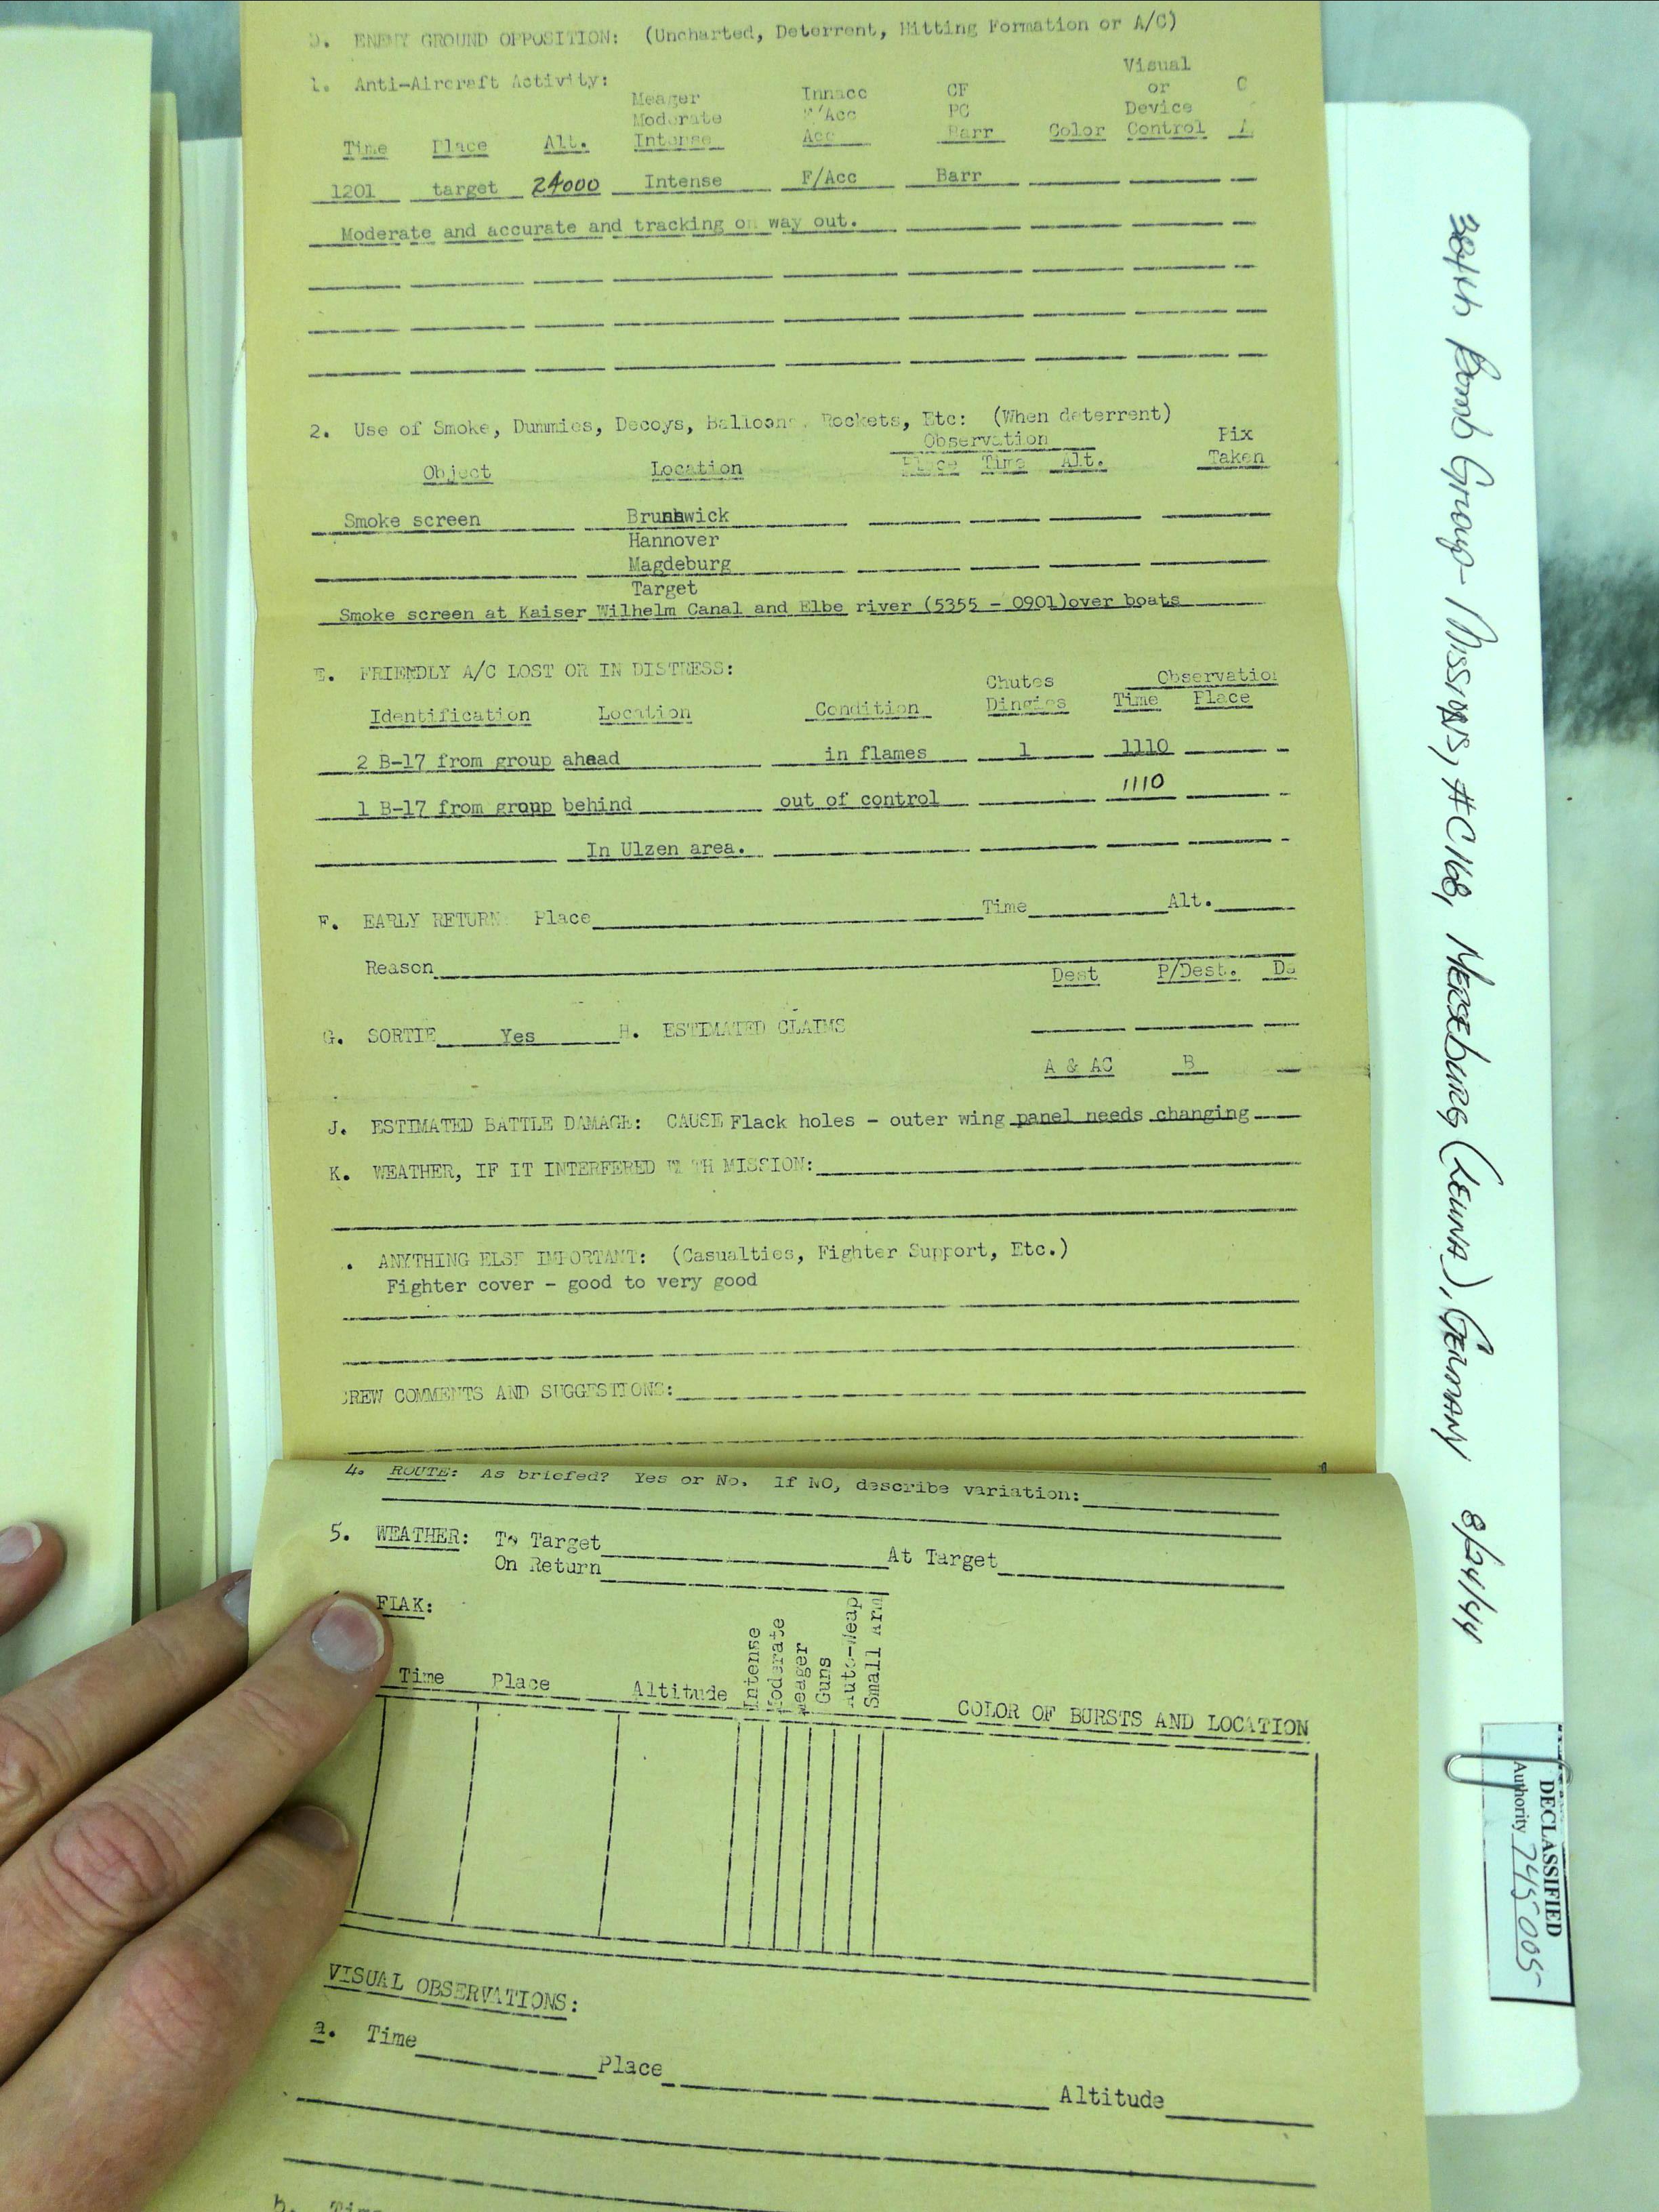 D. ENEMY GROUND OPPOSITION: (Uncharted, Deterrent, Hitting Formation or A/C)
1. Anti-Aircraft Activity:
Meager Innacc CF Visual
Moderate F/Acc PC or
Time Place Alt. Intense Acc Barr Color Device Control
1201 target 24000 Intense F/Acc Barr
Moderate and accurate and tracking on way out.
2. Use of Smoke, Dummies, Decoys, Balloons, Rockets, Etc: (When deterrent)
Observation Pix
Object Location Place Time Alt. Taken
Smoke screen Brunswick
Hannover
Magdeburg
Target
Smoke screen at Kaiser Wilhelm Canal and Elbe river (5355 - 0901)over boats
E. FRIENDLY A/C LOST OR IN DISTRESS:
Chutes Observation
Identification Location Condition Dingies Time Place
2 B-17 from group ahead in flames 1 1110
1 B-17 from group behind out of control 1110
In Ulzen area.
F. EARLY RETURN Place Time Alt.
Reason
Dest P/Dest. Da
G. SORTIE Yes H. ESTIMATED CLAIMS
A & AC B
J. ESTIMATED BATTLE DAMAGE: CAUSE Flack holes - outer wing panel needs changing
K. WEATHER, IF IT INTERFERED WITH MISSION:
. ANYTHING ELSE IMPORTANT: (Casualties, Fighter Support, Etc.)
Fighter cover - good to very good
CREW COMMENTS AND SUGGESTIONS:
4. ROUTE: As briefed? Yes or No. If NO, describe variation:
5. WEATHER: To Target At Target
On Return
FLAK:
Time Place Altitude Intense Moderate Meager Guns Auto-Weap Small Arm COLOR OF BURSTS AND LOCATION
VISUAL OBSERVATIONS:
a. Time Place Altitude
b. Time
384th Bomb Group - Missions, #C168, Merseburg (Leuna), Germany 8/24/44
DECLASSIFIED
Authority 745005